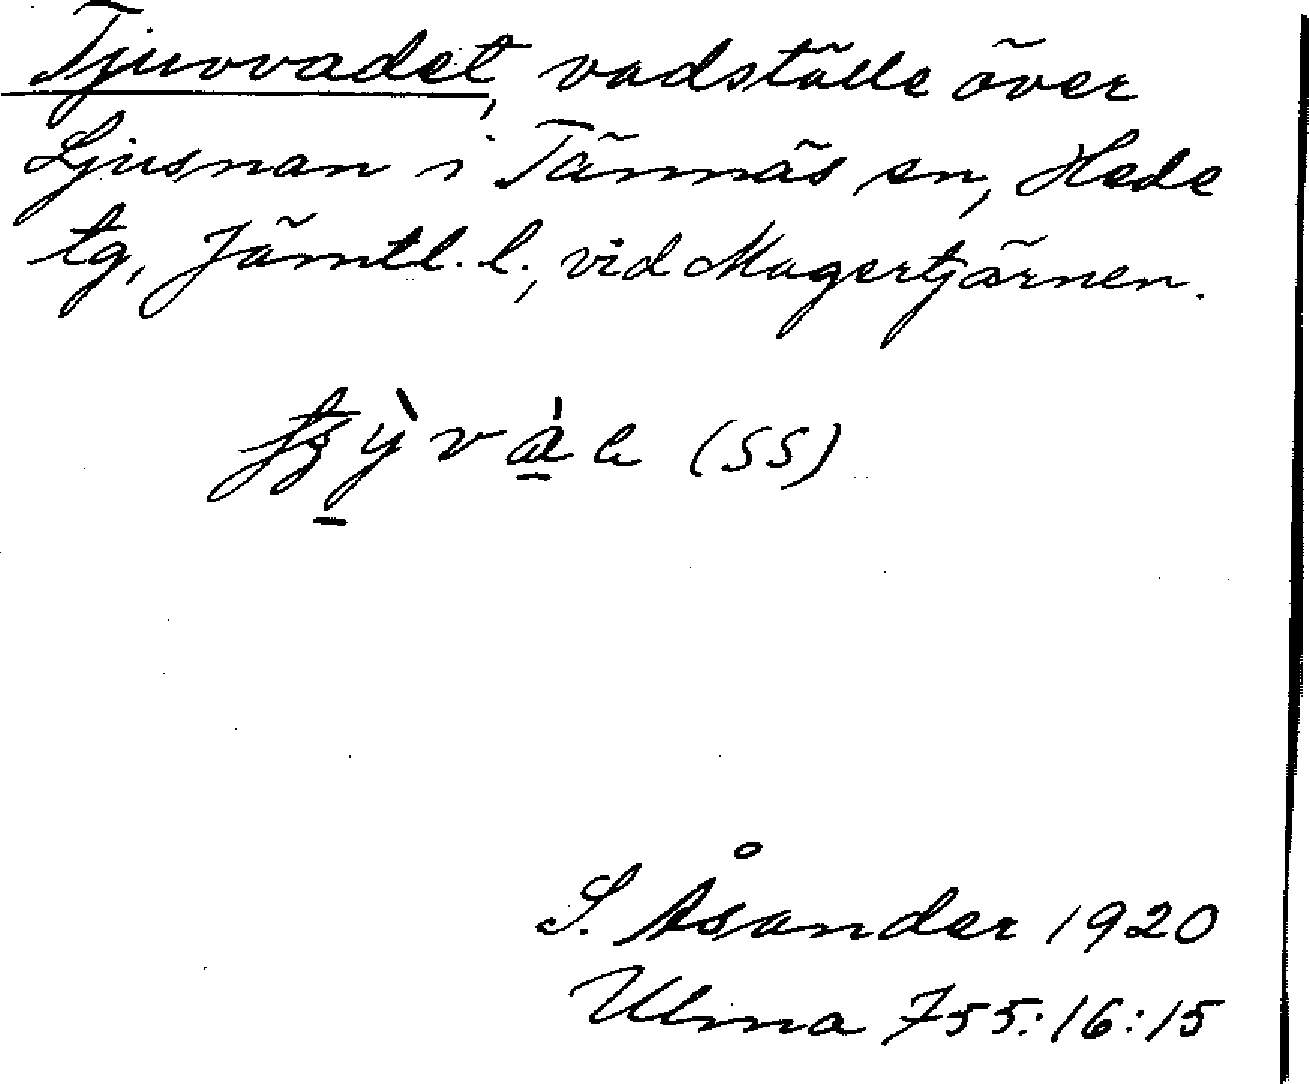 Tjuvvadet, vadställe över
Ljusnan i Tännäs sn, Hede
tg, Jämtl. l., vid Magertjärnen.
(SS)
S. Åsander 1920
Ulma 755:16:15